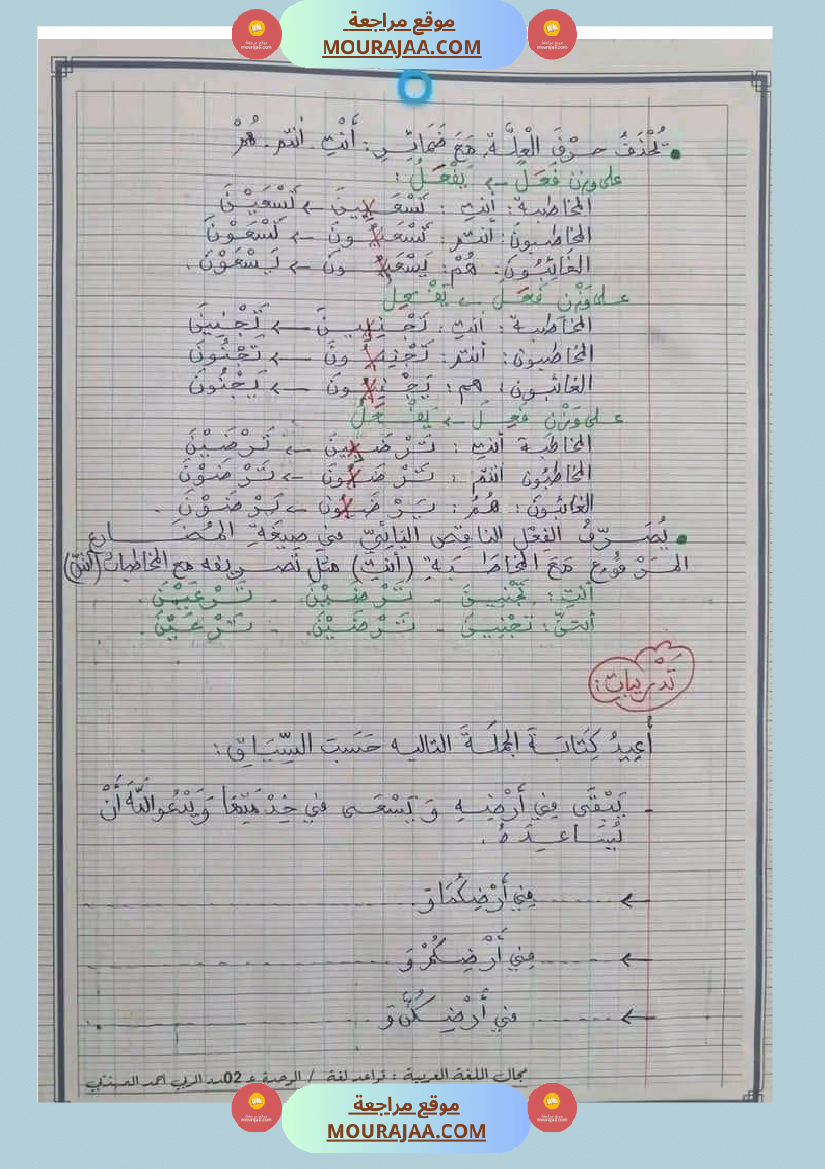 موقع مراجعة
MOURAJAA.COM
• تُحْذَفُ حَرْفُ الْعِلَّةِ مَعَ ضَمَائِرِ: أَنْتِ. أنتم. هُمْ
على وزن فَعَلَ ← يَفْعَلُ:
المخاطبة: أنتِ: تَسْعَيِينَ ← تَسْعَيْنَ
المخاطبون: أنتم: تَسْعَيُونَ ← تَسْعَوْنَ
الغَائِبُونَ: هُمْ: يَسْعَيُونَ ← يَسْعَوْنَ.
على وَزْنِ فَعَلَ ← يَفْعِلُ
المخاطبة: أنتِ: تَجْنِيِينَ ← تَجْنِينَ
المخاطبون: أنتم: تَجْنِيُونَ ← تَجْنُونَ
الغائبون: هم: يَجْنِيُونَ ← يَجْنُونَ
على وَزْنِ فَعِلَ ← يَفْعَلُ
المخاطَبة أنتِ: تَرْضَيِينَ ← تَرْضَيْنَ
المخاطبُون أنتم: تَرْضَيُونَ ← تَرْضَوْنَ
الغائبونَ: هُمُ: يَرْضَيُونَ ← يَرْضَوْنَ.
• يُصَرَّفُ الفِعْل الناقِص اليَائِيّ في صِيغَةِ المُضَارِع
المَرْفُوع مَعَ المخَاطَبَةِ (أنتِ) مثل تَصريفه مع المخاطبات (أنتنّ)
أنتِ: تَجْنِينَ - تَرْضَيْنَ - تَرْعَيْنَ.
أنتنَّ: تَجْنِينَ - تَرْضَيْنَ. - تَرْعَيْنَ.
تَدْرِيبات:
أُعِيدُ كِتَابَةَ الجُملَةَ التاليه حَسَبَ السِّيَاقِ:
- يَبْقَى فِي أَرْضِهِ وَ يَسْعَى في خِدْمَتِهَا وَيَدْعُو اللَّهَ أَنْ
يُسَاعِدَهُ.
← ...... فِي أَرْضِكُمَا وَ ......
← ...... فِي أَرْضِكُمْ وَ ......
← ...... في أَرْضِكُنَّ وَ ......
مجال اللغة العربية: قواعد لغة / الوحدة ع02دد
موقع مراجعة
MOURAJAA.COM